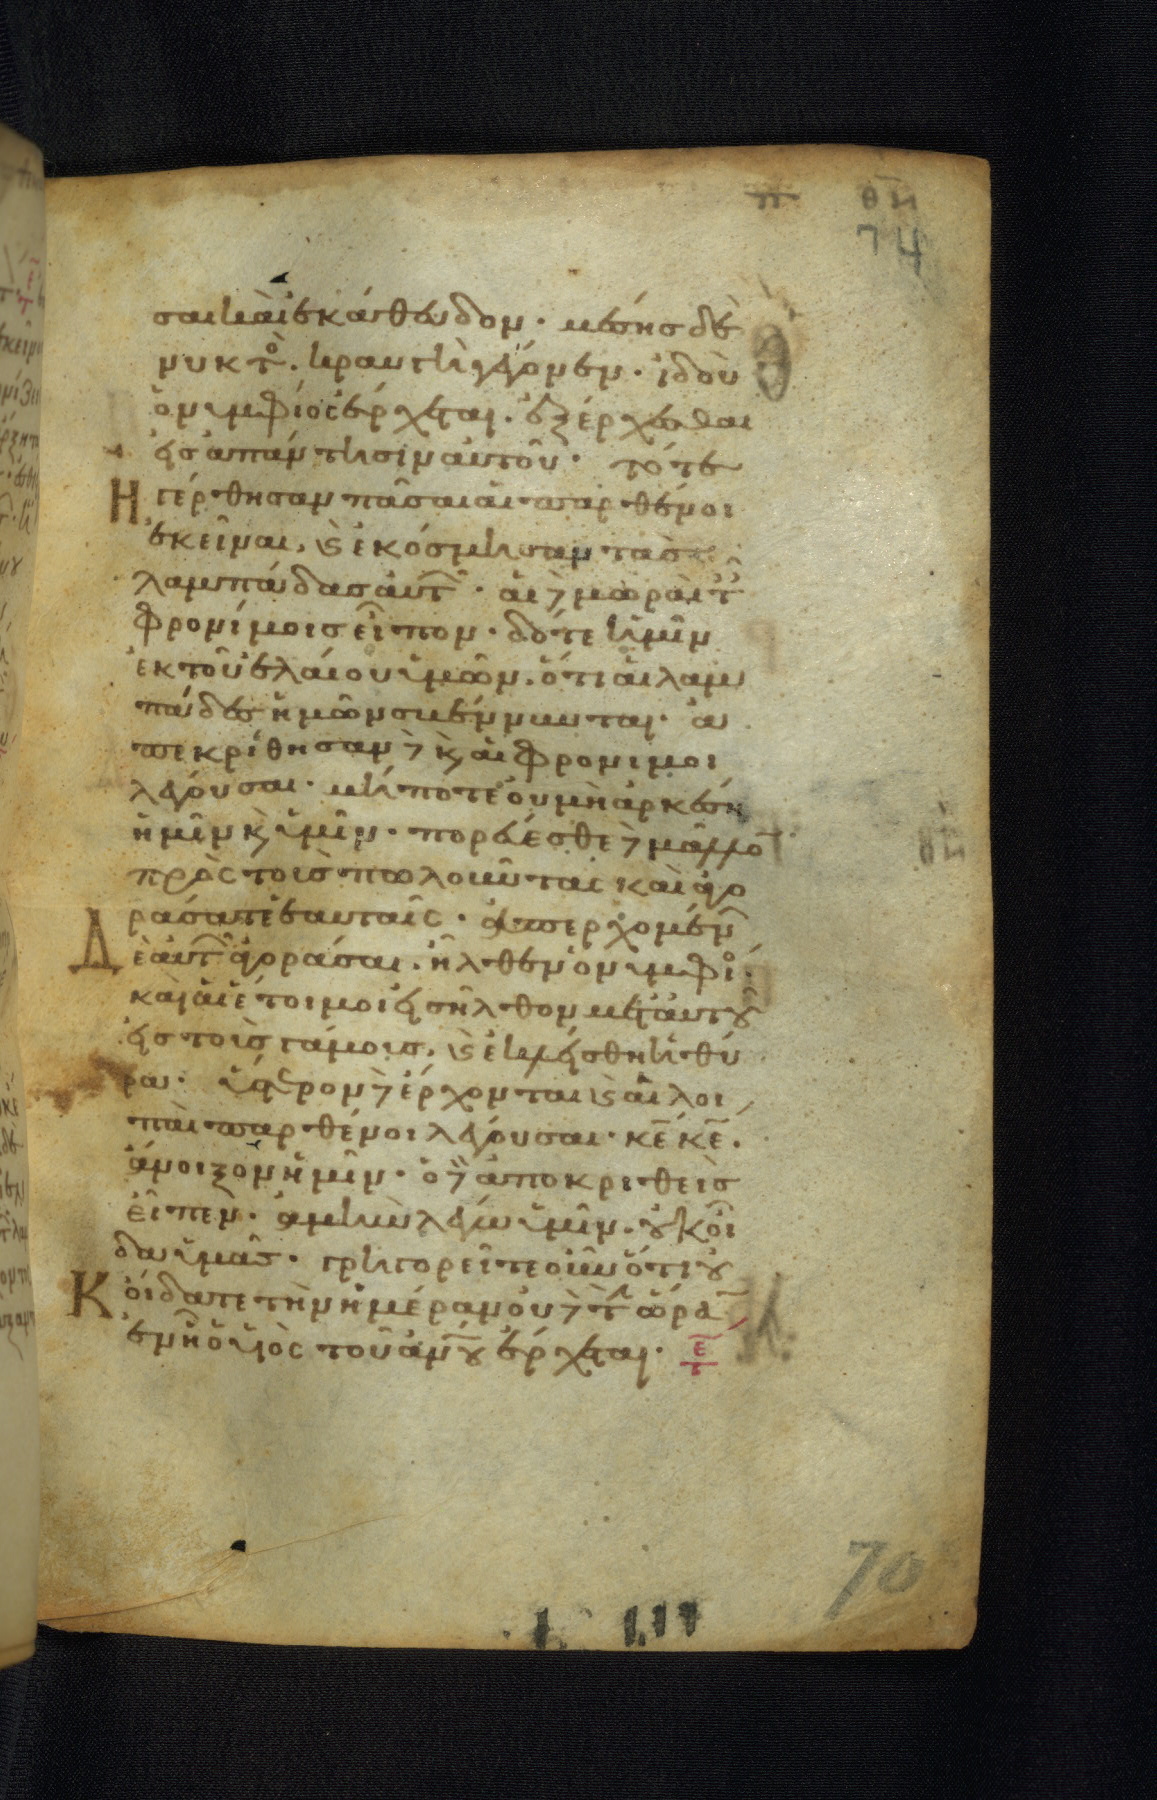 θ̅ν̅
74
σαι καὶ ἐκάθευδον· μέσης δὲ
νυκτ(ὸς). κραυγὴ γέγονεν· ἰδοὺ
ὁ νυμφίος ἔρχεται. ἐξέρχεσθαι
εἰς ἀπάντησιν αὐτοῦ· τότε
Ηγέρθησαν πᾶσαι αἱ παρθένοι
ἐκεῖναι, ϗ ἐκόσμησαν τὰς
λαμπάδας αὐτ(ῶν)· αἱ δὲ μωραὶ τ(αῖς)
φρονίμοις εἶπον· δότε ἡμῖν
ἐκ τοῦ ἐλαίου ὑμῶν. ὅτι αἱ λαμ
πάδες ἡμῶν σβέννυνται· ἀ
πεκρίθησαν δὲ ϗ αἱ φρόνιμοι
λέγουσαι· μήποτε οὐ μὴ ἀρκέση
ἡμῖν ϗ ὑμῖν· πορεύεσθε δὲ μᾶλλο(ν)
πρὸς τοὺς πωλοῦντας καὶ ἀγο
ράσατε ἑαυταῖς· ἀπερχομέν(ων)
Δὲ αὐτ(ῶν) ἀγοράσαι. ἦλθεν ὁ νυμφί(ος).
καὶ αἱ ἕτοιμοι εἰσῆλθον μετ' αὐτοῦ
εἰς τοὺς γάμους, ϗ ἐκλείσθη ἡ θύ
ρα· ὕστερον δὲ ἔρχονται ϗ αἱ λοι
παὶ παρθένοι λέγουσαι· κ̅ε̅ κ̅ε̅.
ἄνοιξον ἡμῖν· ὁ δὲ ἀποκριθεὶς
εἶπεν· ἀμὴν λέγω ὑμῖν. οὐκ οἶ
δα ὑμᾶς· γρηγορεῖτε οὖν ὅτι οὐ
Κ οἴδατε τὴν ἡμέραν οὐδὲ τ(ὴν) ὥρα(ν)
ἐν ῇ ὁ υἱὸς τοῦ ἀν̅ου ἔρχεται· ε̅τ
70